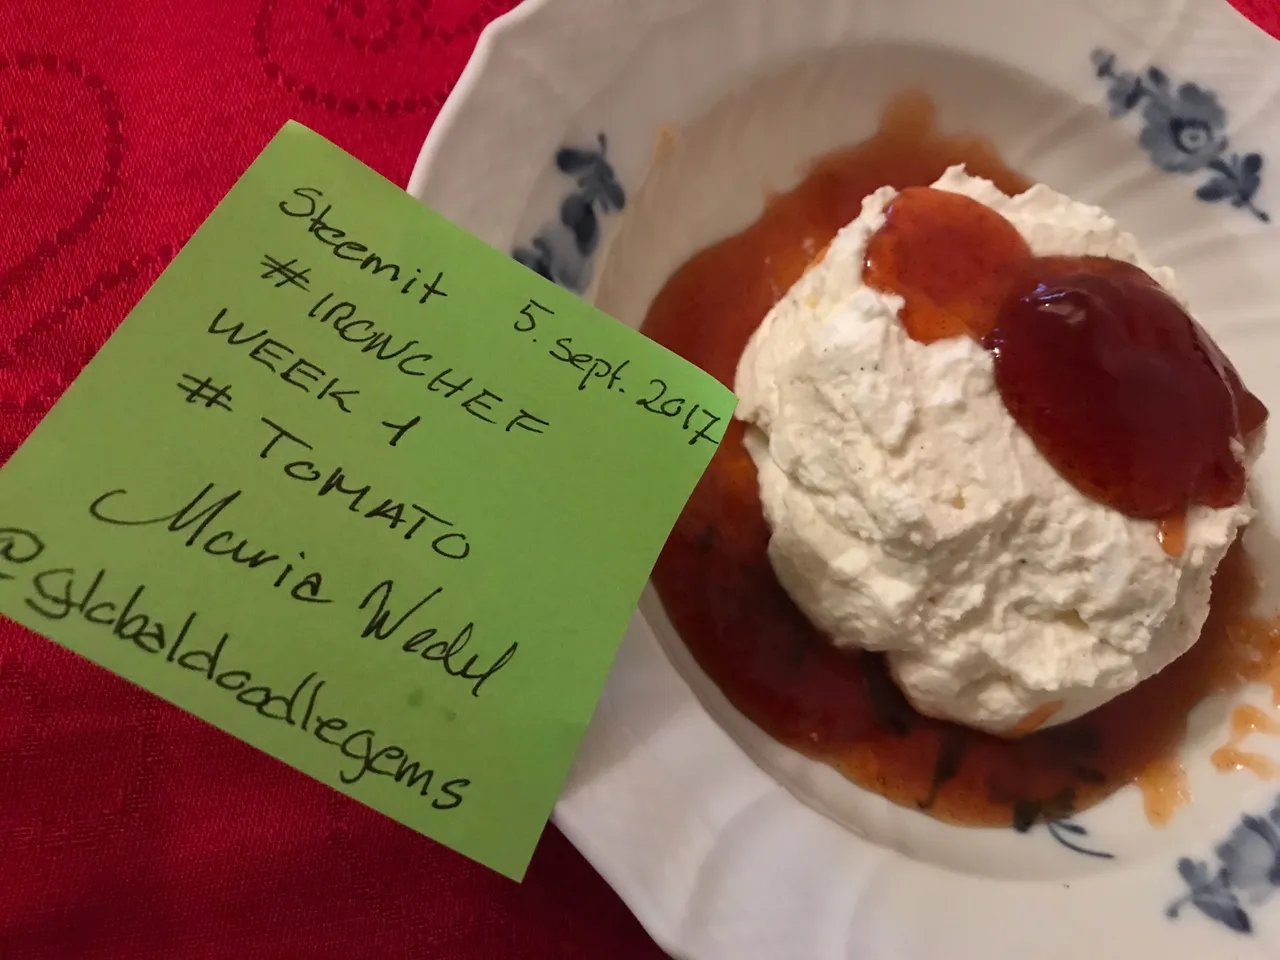 Steemit 5. sept. 2017
#IRONCHEF
WEEK 1
# TOMATO
Maria Wedel
@globaldoodlegems